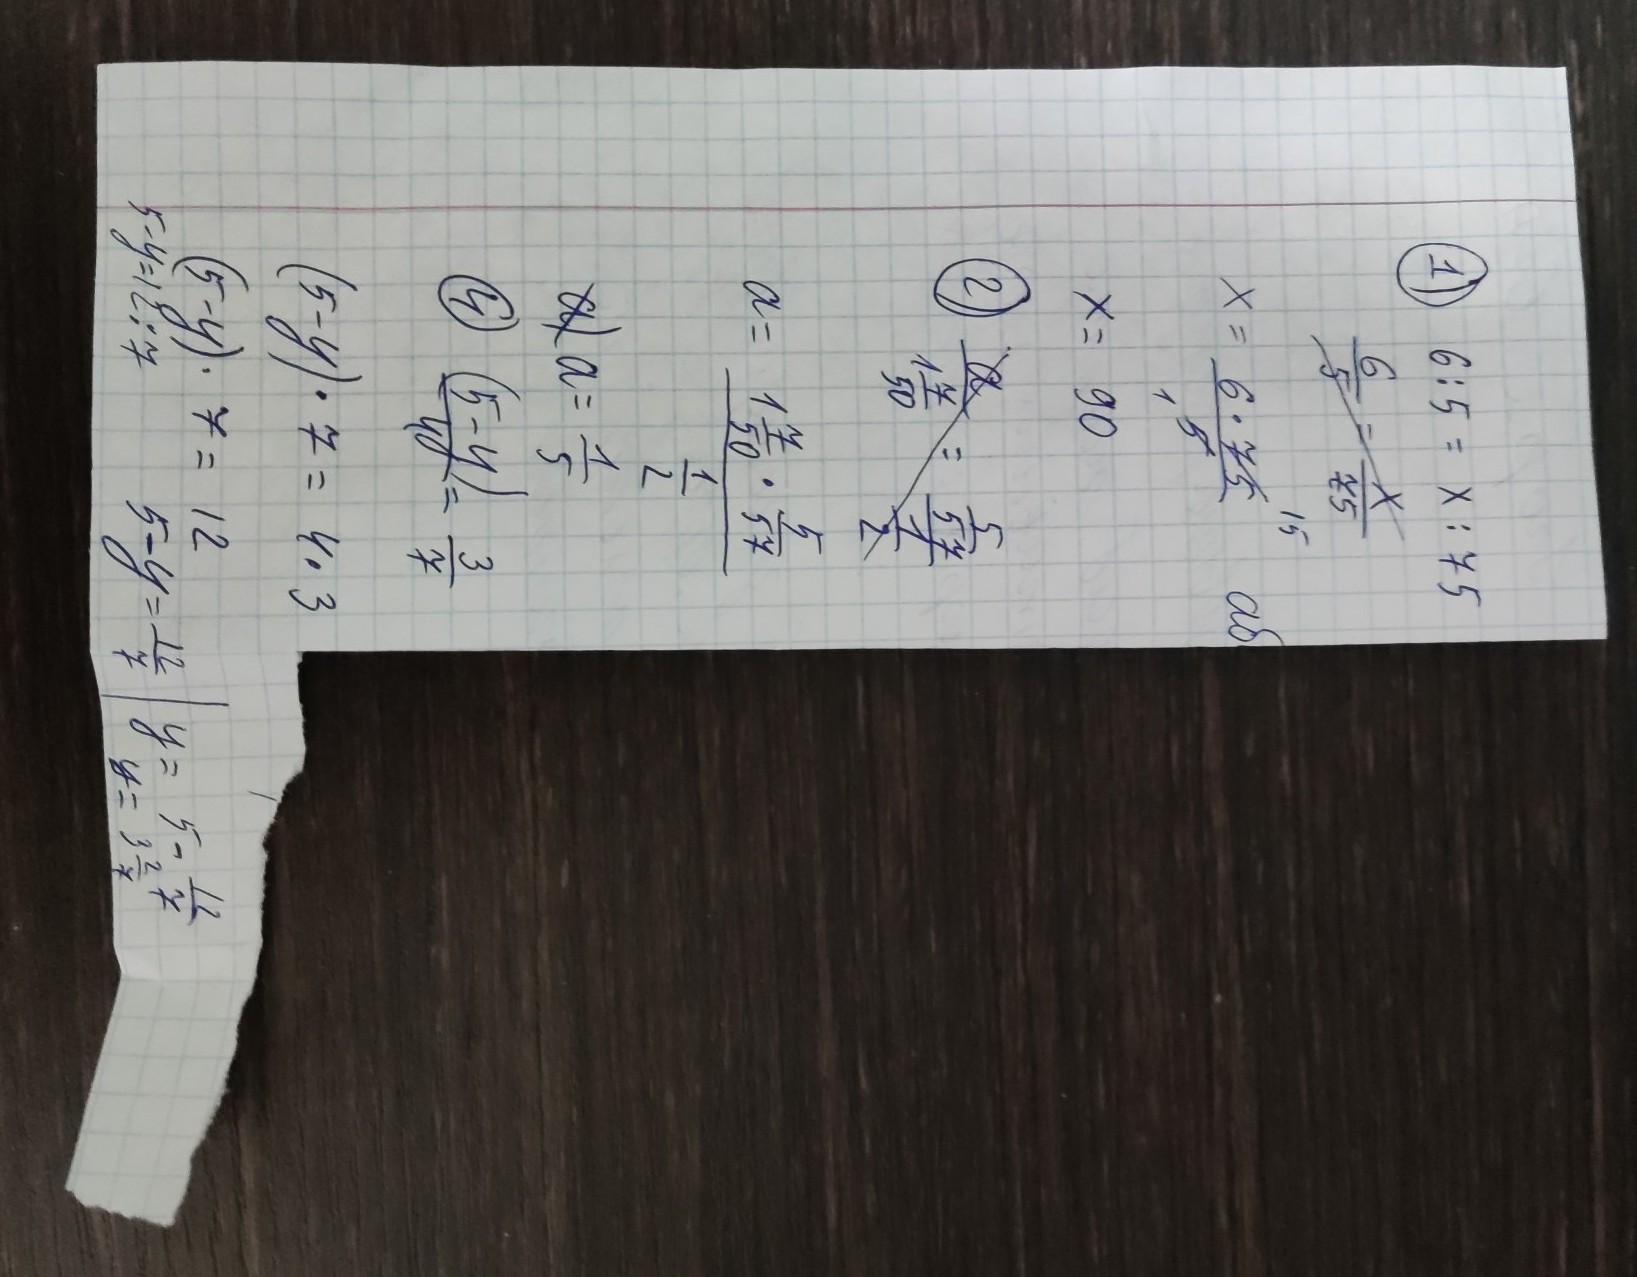 1) 6:5 = x:75
6/5 = x/75
x = 6·75/5 15 1 аб
x = 90
2) a/1 7/50 = 5/57/1/2
a = 1 7/50 · 5/57
1/2
a) a = 1/5
4) (5-y)/4 = 3/7
(5-y)·7 = 4·3
(5-y)·7 = 12
5-y=12:7 5-y=12/7 | y = 5-12/7
y = 3 2/7